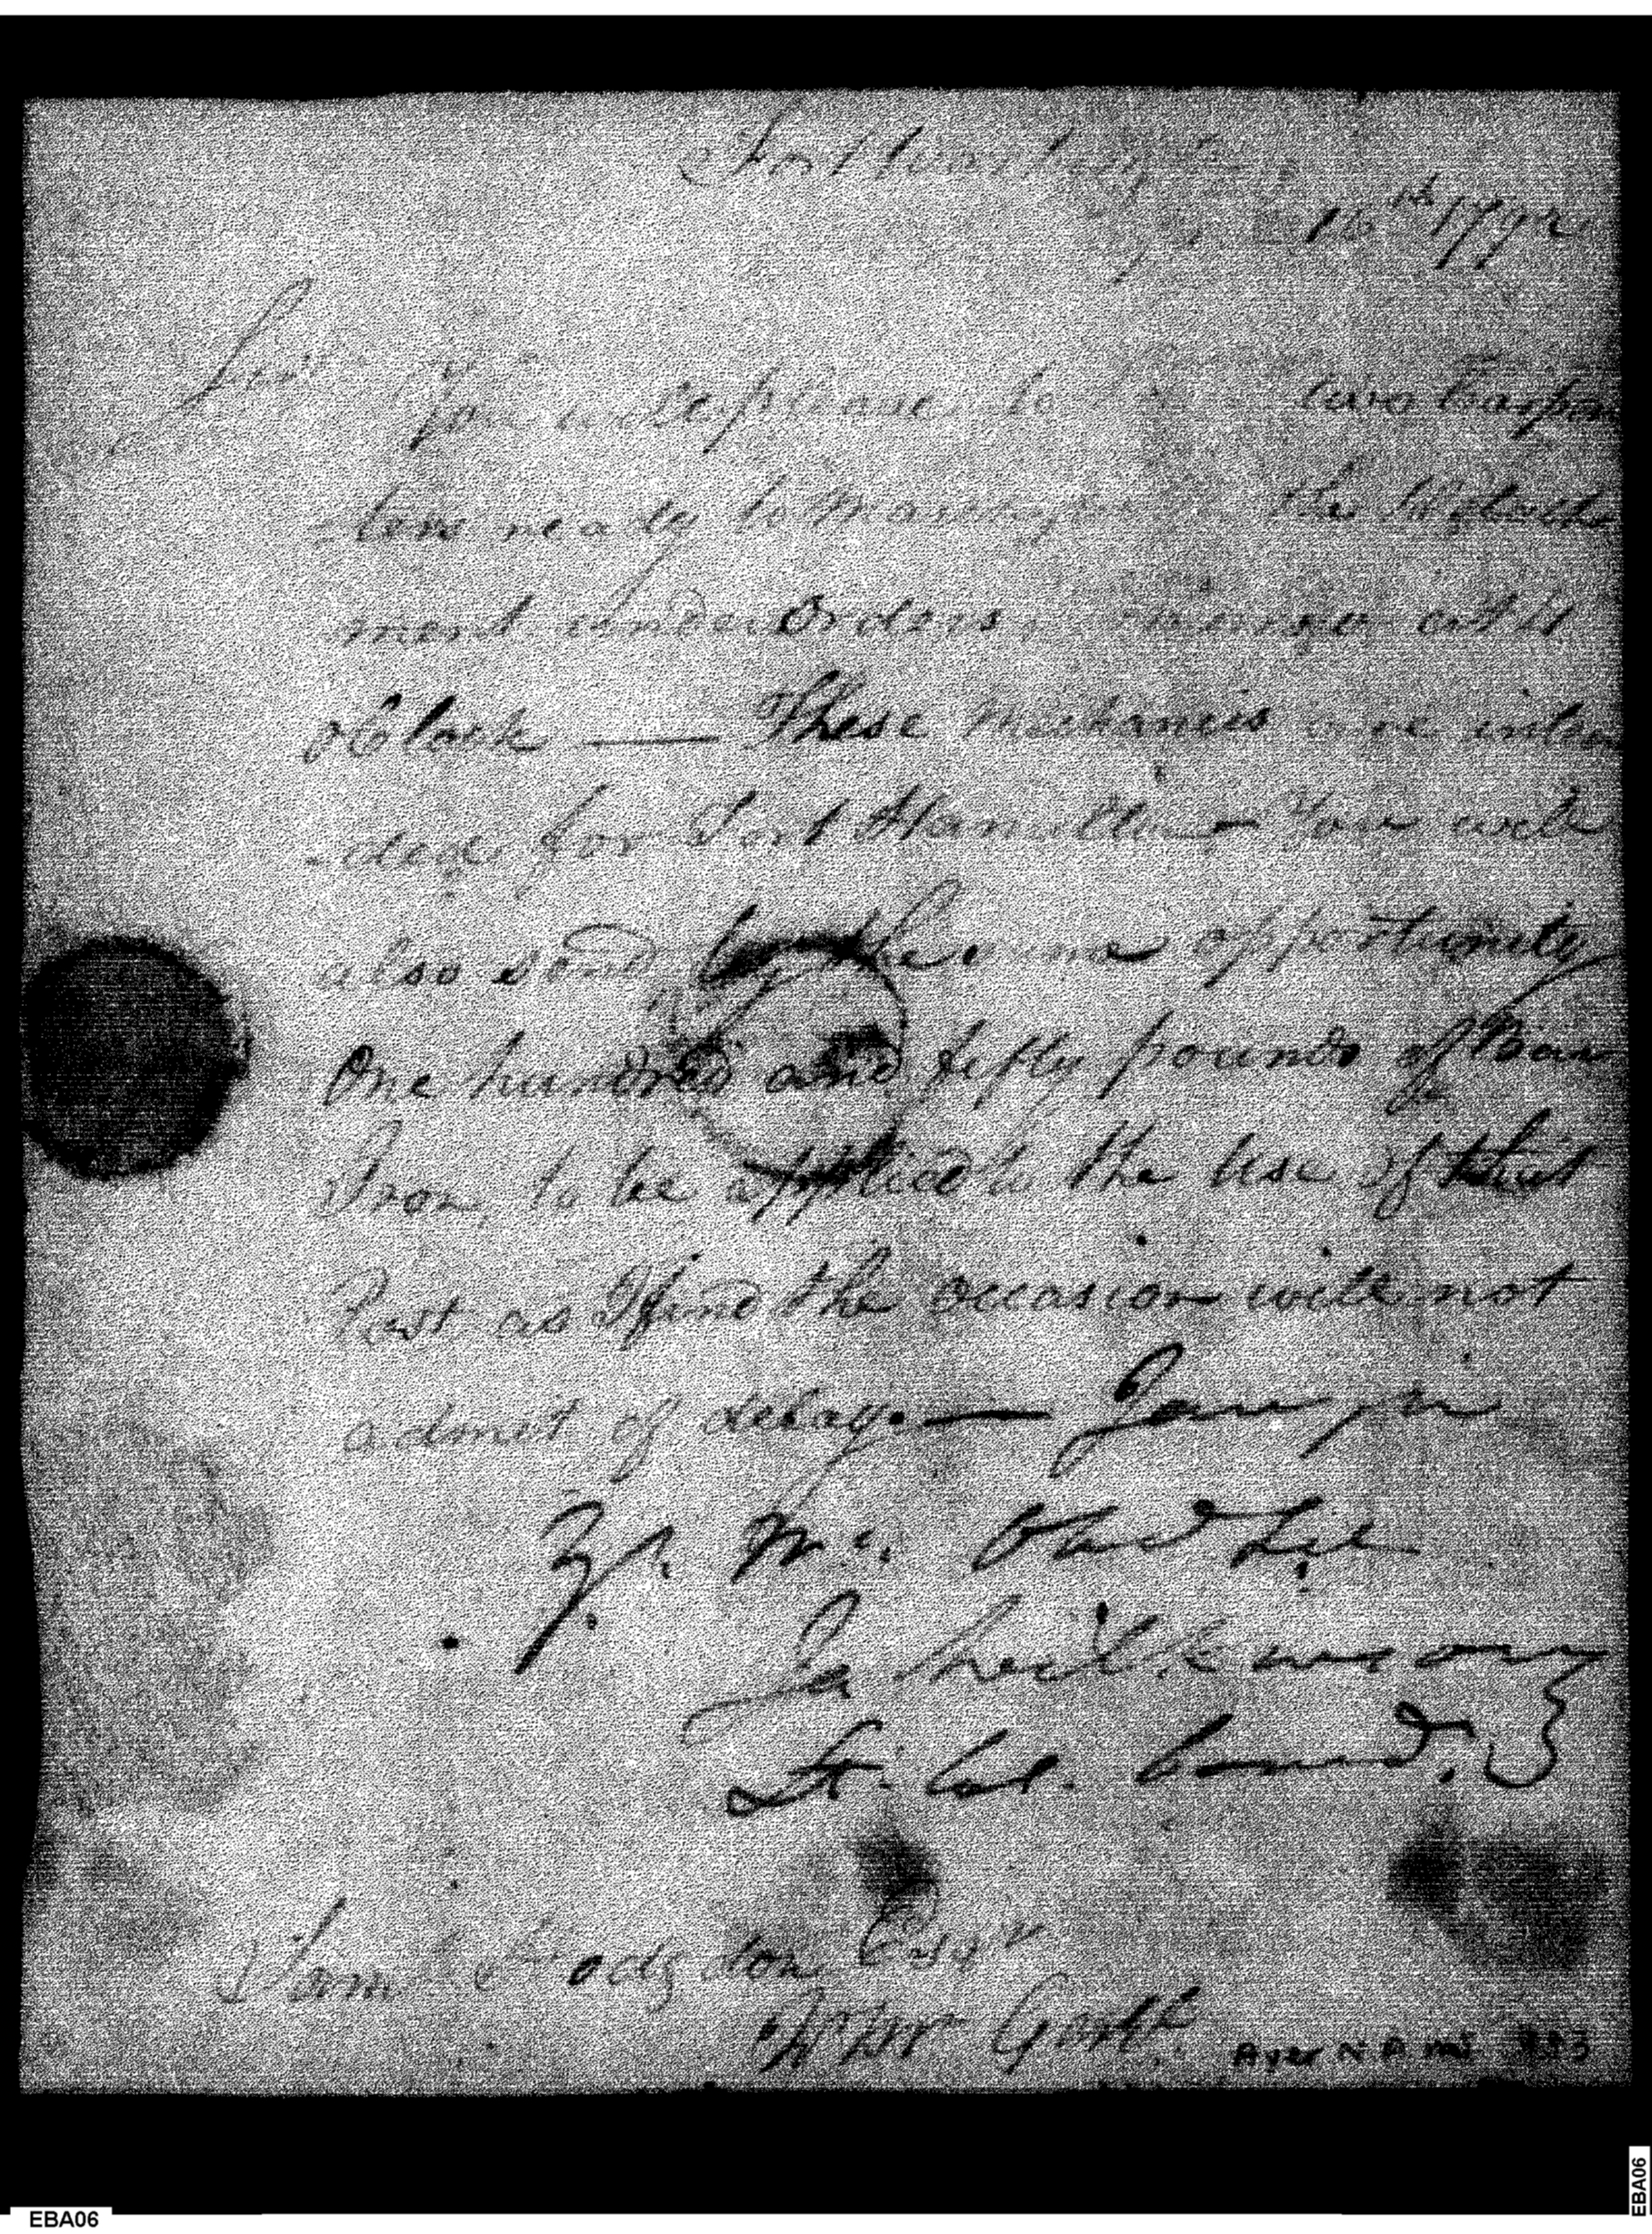 Fort Washington
16th 1792
Sir
You will please to two Carpen
-ters ready to march the Detach
ment under Orders, at 11
oClock — These Mechanics are inten
-ded for Fort Hamilton — You will
also send by the same opportunity
One hundred and fifty pounds of Bar
Iron, to be applied to the Use of that
Post as I find the occasion will not
admit of delay — I am, sir
Yr. Mo. Obed Ser
Ja Wilkinson
Lt. Col. Comdt.
Saml Hodgdon Esqr
Qr Mr Genl.
Ayer N. A. MS 333
EBA06
EBA06